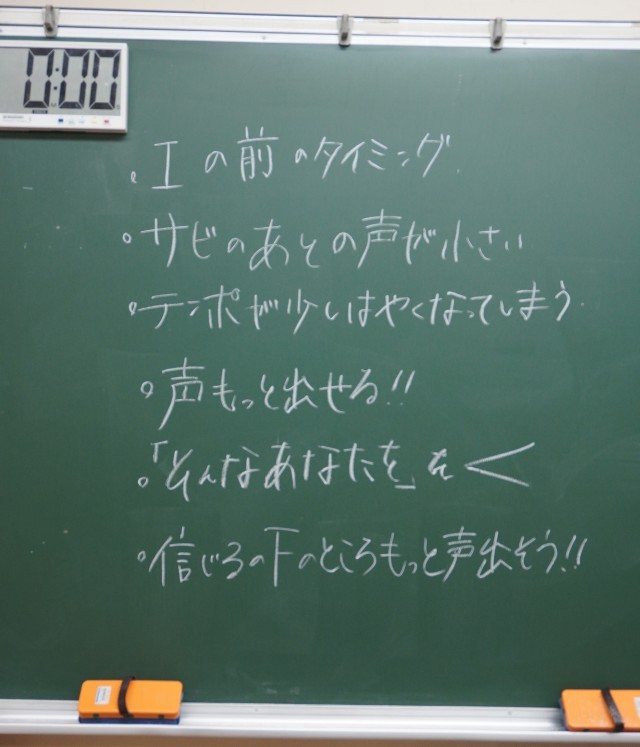 0:00
。Iの前のタイミング.
。サビのあとの声が小さい
。テンポが少しはやくなってしまう.
。声もっと出せる!!
。「そんなあなたを」を<
。信じるの下のところもっと声出そう!!